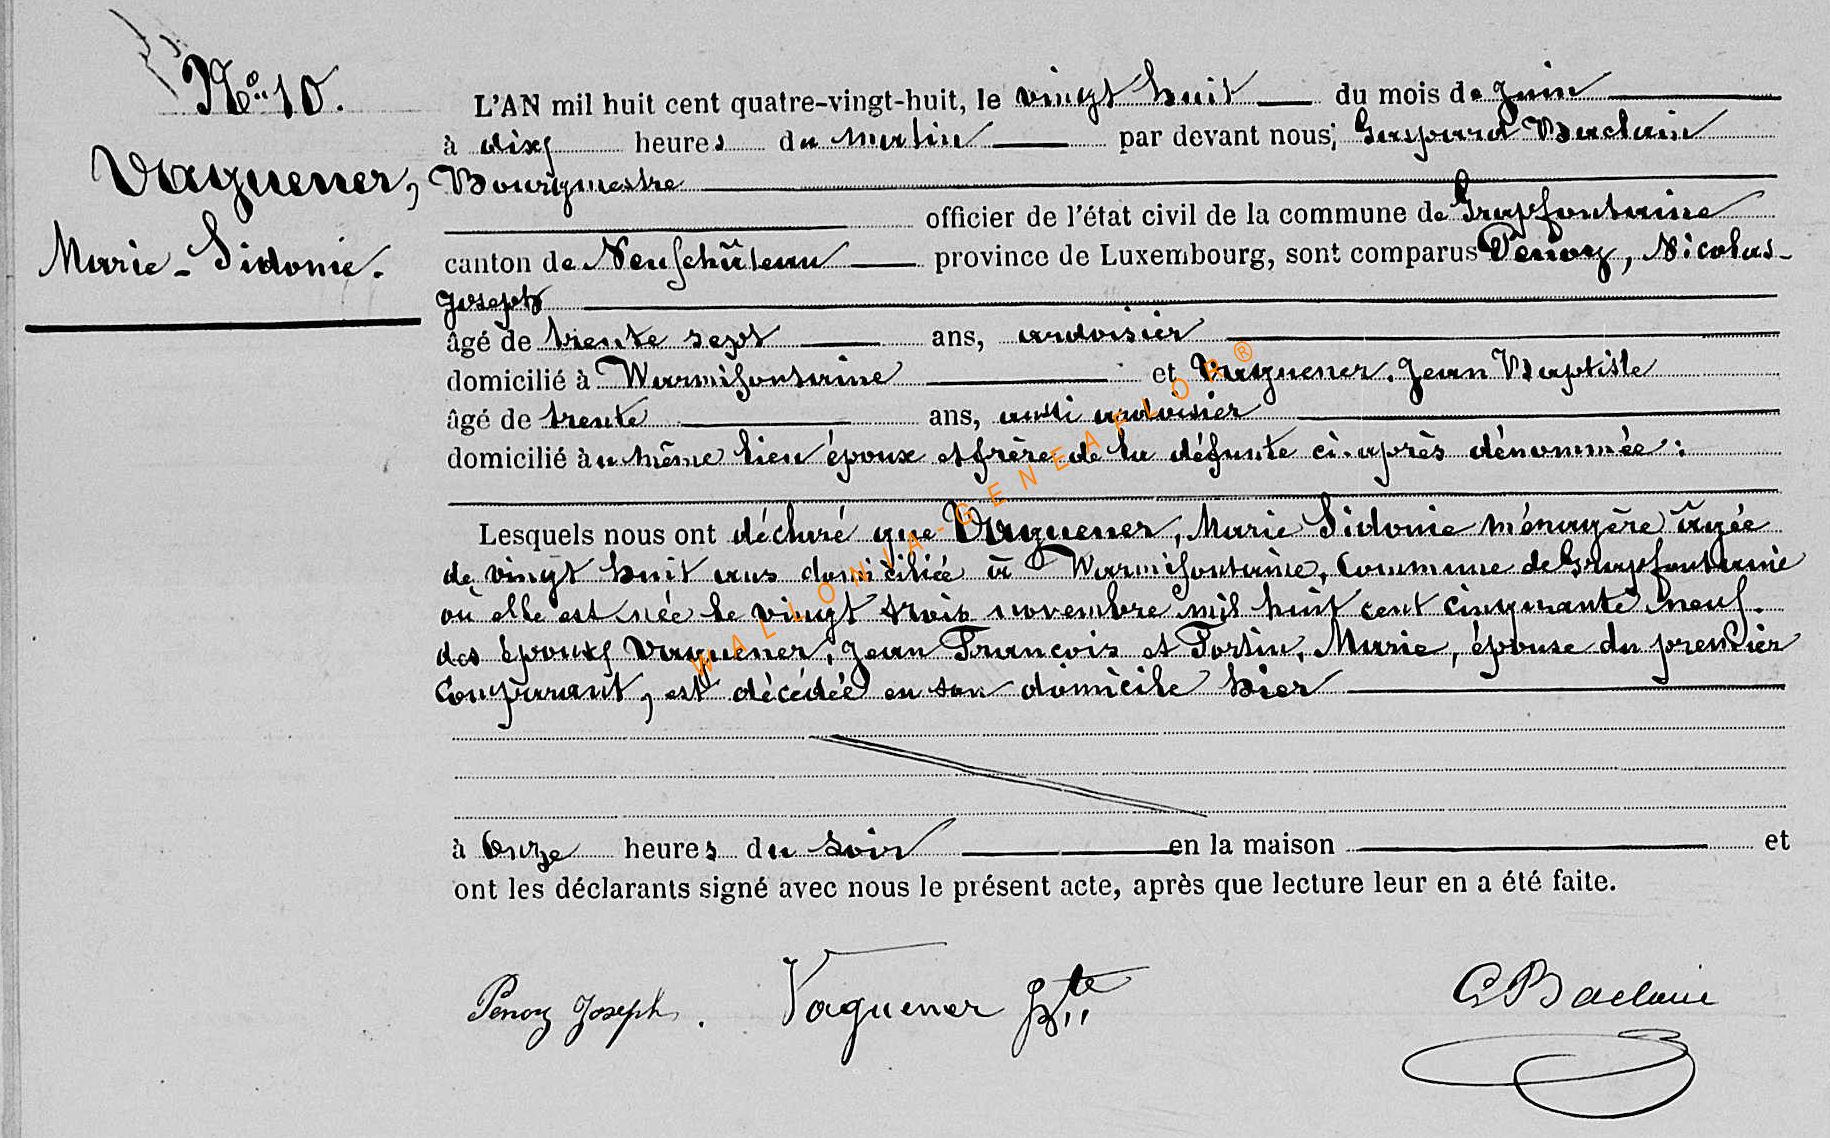 No 10.
Vaguener,
Marie-Sidonie.
L'AN mil huit cent quatre-vingt-huit, le vingt huit du mois de Juin
à dix heures du matin par devant nous, Gaspard Baclain
Bourgmestre
officier de l'état civil de la commune de Grapfontaine
canton de Neufchâteau province de Luxembourg, sont comparus Penoy, Nicolas-
Joseph
âgé de trente sept ans, ardoisier
domicilié à Warmifontaine et Vaguener, Jean Baptiste
âgé de trente ans, aussi ardoisier
domicilié au même lieu époux et frère de la défunte ci-après dénommée:
Lesquels nous ont déclaré que Vaguener, Marie Sidonie ménagère âgée
de vingt huit ans domiciliée à Warmifontaine, Commune de Grapfontaine
où elle est née le vingt trois novembre mil huit cent cinquante neuf.
des époux Vaguener, Jean François et Fortin, Marie, épouse du premier
Comparant, est décédée en son domicile hier
à Onze heures du soir en la maison et
ont les déclarants signé avec nous le présent acte, après que lecture leur en a été faite.
Penoy Joseph. Vaguener Bte G Baclain
WALLONIA-GENEAFLOR®